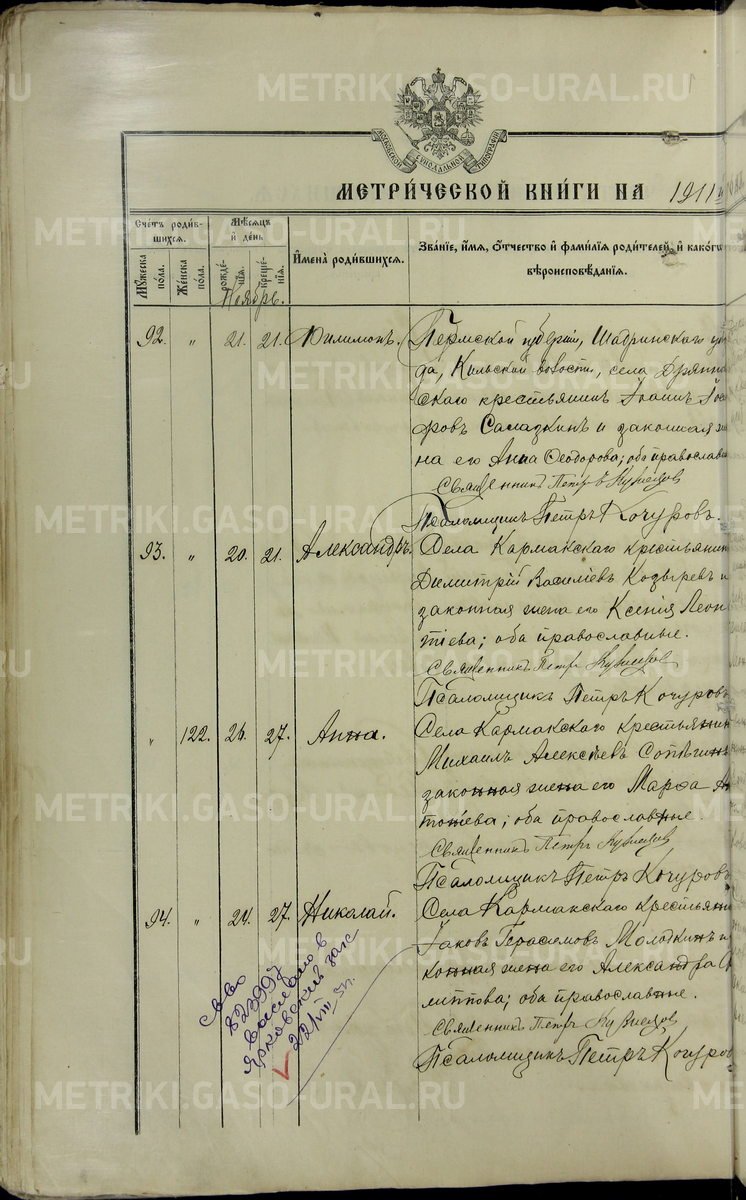 METRIKI.GASO-URAL.RU
МОСКОВСКОЙ СѴНОДАЛЬНОЙ ТИПОГРАФІИ
МЕТРИ́ЧЕСКОЙ КНИ́ГИ НА 1911й
Сче́тъ роди́вшихся.
Му́жеска по́ла.
Же́нска по́ла.
Мѣ́сяцъ и҆ де́нь
рожде́нія.
креще́нія.
И҆мена̀ роди́вшихся.
Зва́ніе, и҆́мя, ѻ҆́тчество и҆ фами́лія роди́телей, и҆ како́гѡ
вѣроисповѣ́данія.
Ноябрь.
92. " 21. 21. Филимонъ. Пермской губерніи, Шадринскаго уѣз
да, Кильской волости, села
скаго крестьянинъ Іоаннъ
ровъ Саладкинъ и законная же
на его Анна Ѳеодорова; оба православн
Священникъ Петръ Кузнецов
Псаломщикъ Петръ Кочуровъ.
93. " 20. 21. Александръ. Села Кармакскаго крестьянин
Димитрій Василіевъ Козыревъ и
законная жена его Ксенія Леон
тіева; оба православные.
Священникъ Петръ Кузнецов
Псаломщикъ Петръ Кочуровъ
" 122. 26. 27. Анна. Села Кармакскаго крестьянин
Михаилъ Алексѣевъ Сопѣгинъ
законная жена его Марѳа Ан
тоніева; оба православные.
Священникъ Петръ Кузнецов
Псаломщикъ Петръ Кочуровъ
94. " 24. 27. Николай. Села Кармакскаго крестьяни
Іаковъ Герасимовъ Молодкинъ и
конная жена его Александра
липпова; оба православные.
Священникъ Петръ Кузнецов
Псаломщикъ Петръ Кочуров
св-во
823997
выслано в
Ярковский загс
22/VIII-57г.